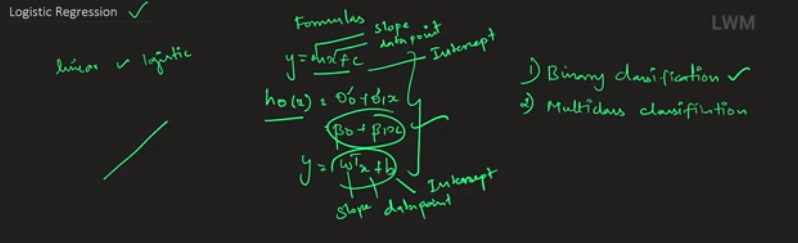 Logistic Regression ✓
LWM
linear ✓ logistic
Formulas
slope
datapoint
y = mx + c
Intercept
hθ(x) = θ0 + θ1x
β0 + β1x
y = wᵀx + b
Intersept
slope datapoint
1) Binary classification ✓
2) Multiclass classifiution